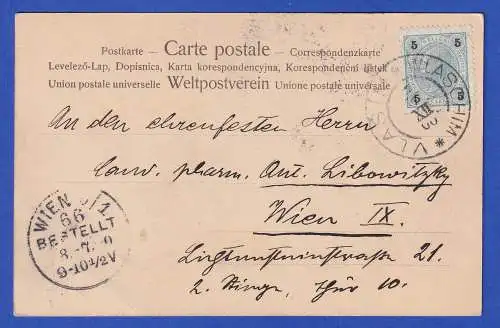 Postkarte – Carte postale – Correspondenzkarte
Levelező-Lap, Dopisnica, Karta korespondencyjna, Korespondenční lístek
Union postale universelle Weltpostverein Unione postale universale
5 5
5 5
VLASCHIM * VLAS
An den ehrenfesten Herrn
cand. pharm. Ant. Libowitzky
Wien IX.
Liechtensteinstraße 21.
2. Stiege, Thür 10.
WIEN 9/1
66
BESTELLT
9-10½V